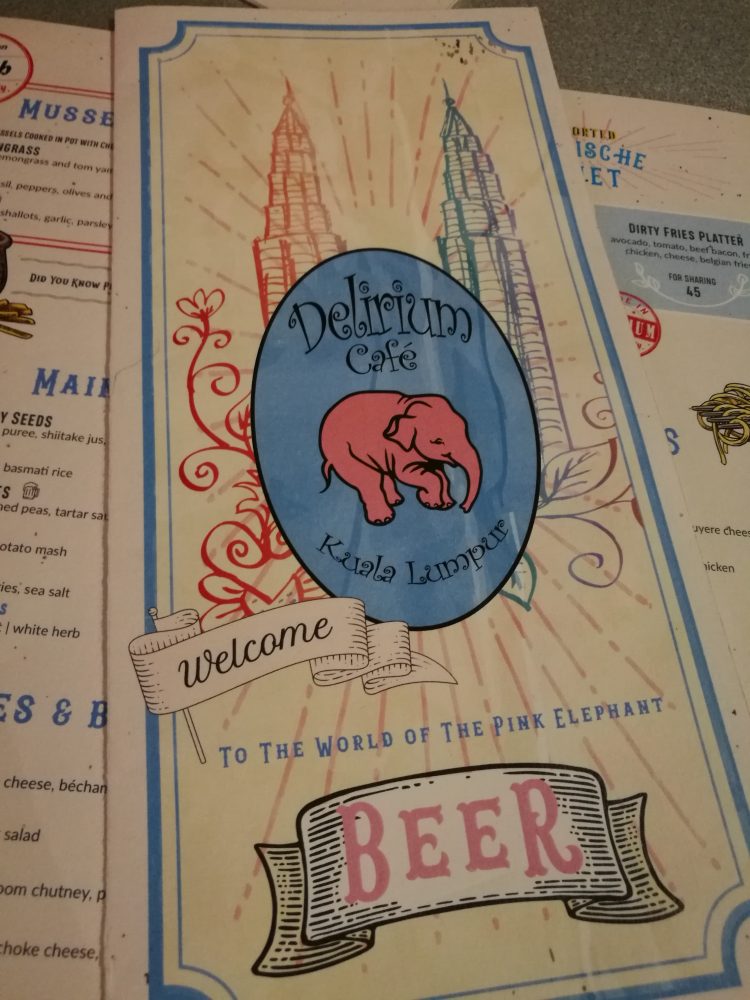 Delirium
Café
Kuala Lumpur
Welcome
To The World of The Pink Elephant
BEER
MUSSE
SSELS COOKED IN POT WITH CH
NGRASS
emongrass and tom yam
sil, peppers, olives and
shallots, garlic, parsley
DID YOU KNOW
MAIN
Y SEEDS
puree, shiitake jus,
basmati rice
ed peas, tartar sau
otato mash
ries, sea salt
t | white herb
ES & B
cheese, bécham
salad
oom chutney, p
choke cheese,
ORTED
ISCHE
LET
DIRTY FRIES PLATTER
avocado, tomato, beef bacon, fr
chicken, cheese, belgian fries
FOR SHARING
45
E IN
UM
S
uyere chees
hicken